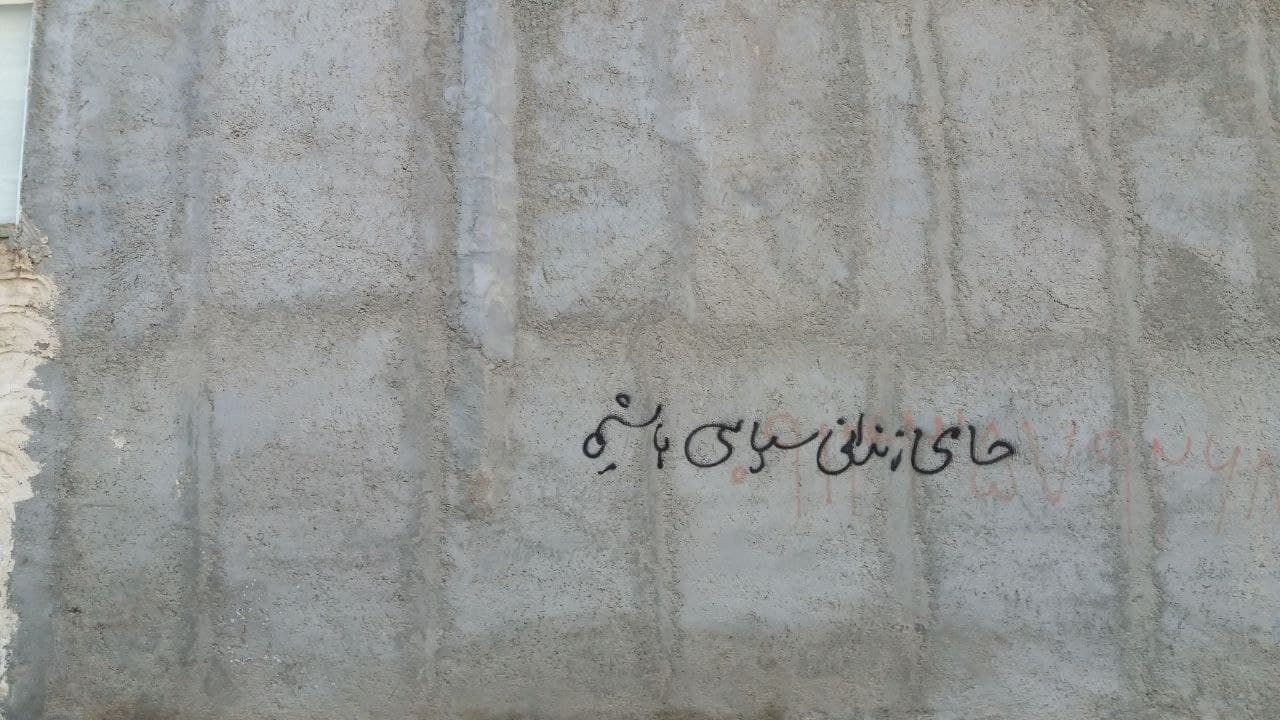 حامی زندانی سیاسی باشیم